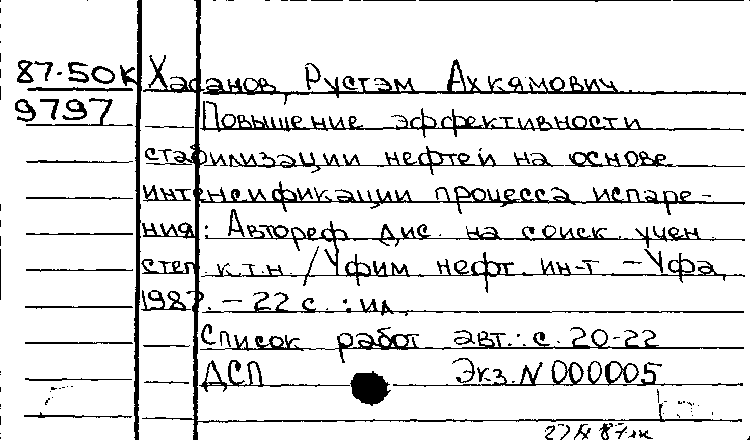 87-50К Хасанов, Рустэм Ахкямович
9797 Повышение эффективности
стабилизации нефтей на основе
интенсификации процесса испаре-
ния: Автореф. дис. на соиск. учен.
степ. к.т.н. / Уфим. нефт. ин-т. – Уфа,
1987. – 22 с. : ил.
Список работ авт.: с. 20-22
ДСП Экз. N 000005